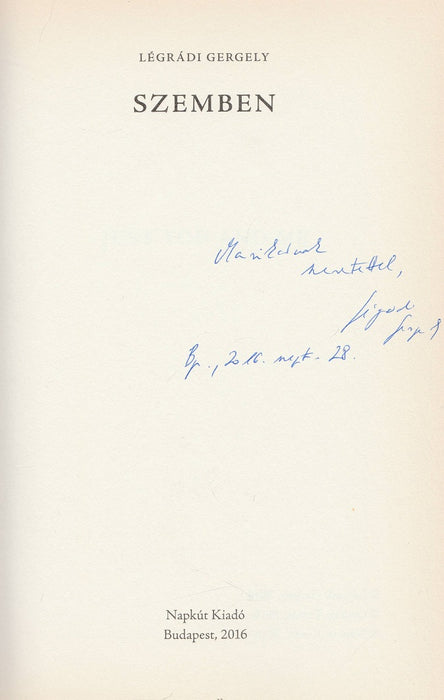 LÉGRÁDI GERGELY
SZEMBEN
Marikának
szeretettel,
Bp., 2016. szept. 28.
Napkút Kiadó
Budapest, 2016